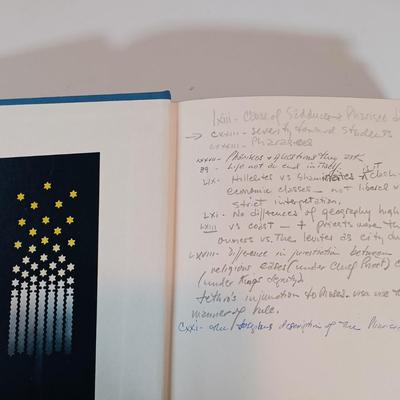 lxiii - Clase of Sadducees + Pharisee
→ cxviii - severity toward students
cxxxiii - Pharasees
xxxvii - Pharisees + questions they ask
89 - Life not an end in itself
Lix - Hillelites vs Shammaites - clash
economic classes - not liberal vs
strict interpretation.
Lxi - No differences of geography high
Lxiii vs coast - + priests were the
owners vs. the levites as city
Lxviii - Difference in jurisdiction between
religious cases (under chief Priest)
(under Kings dignity)
Jethro's injunction to Moses.
manner of rule.
Cxxi - one Josephus description of the